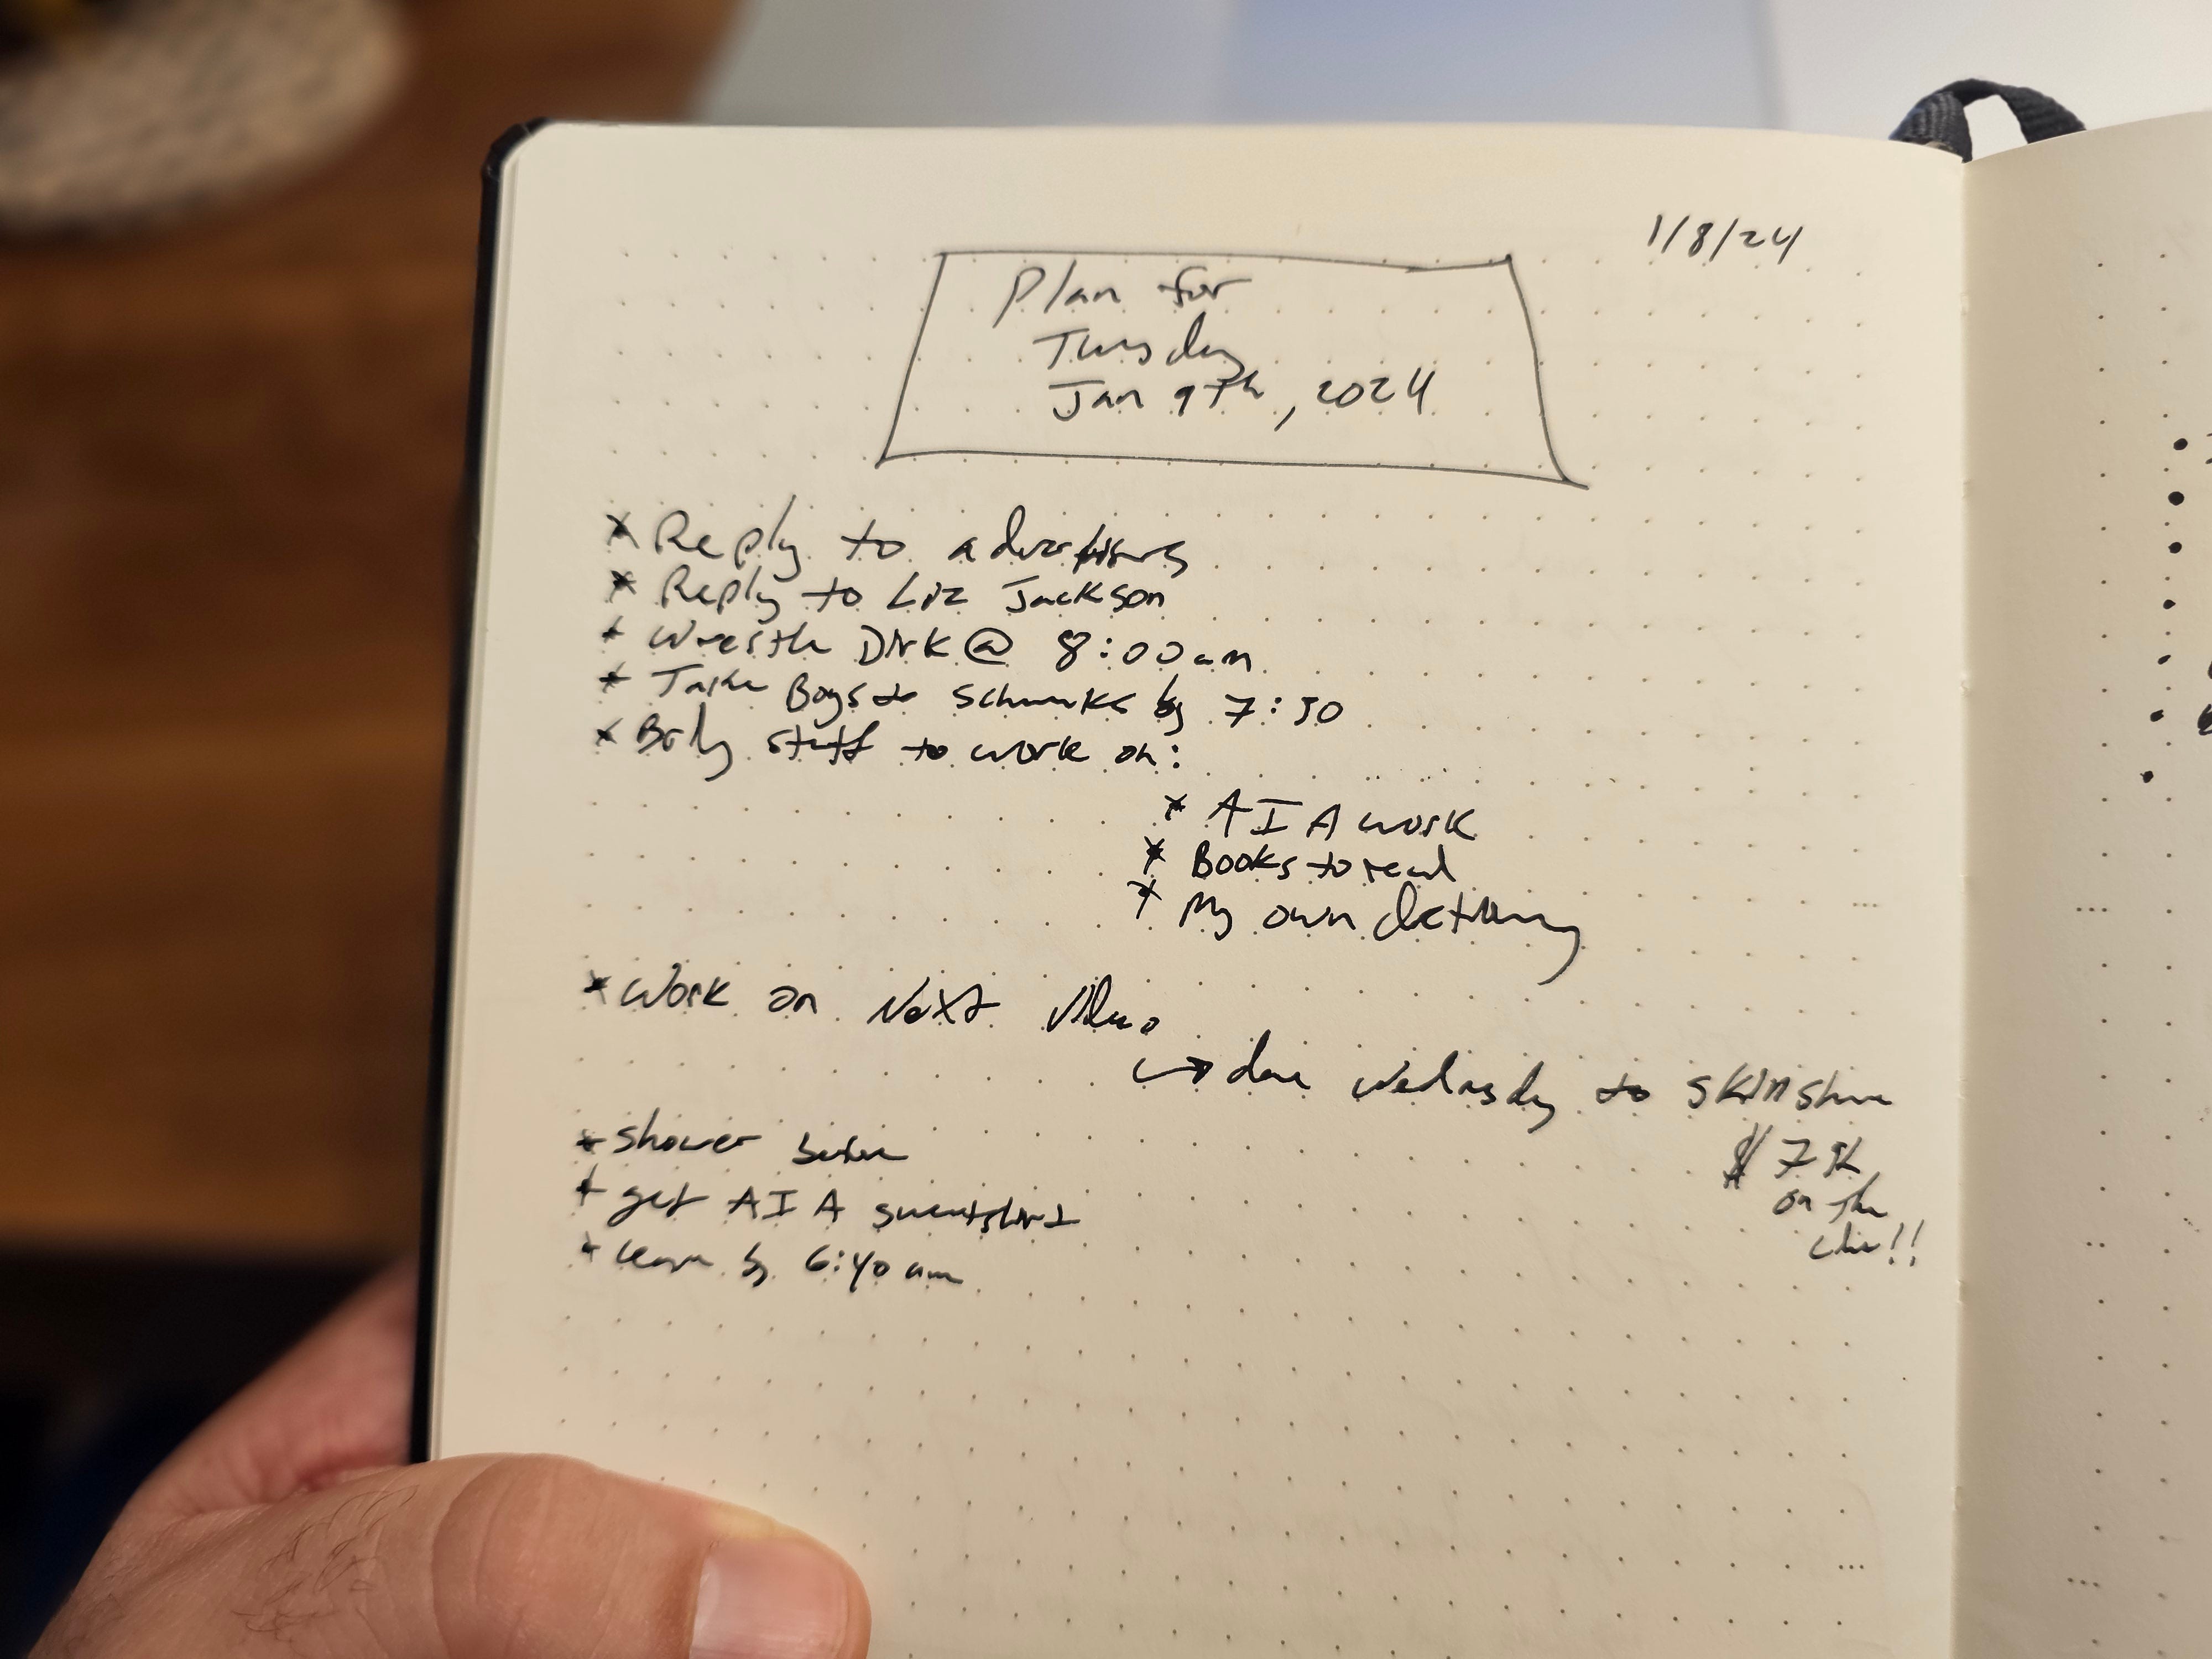 1/8/24
Plan for
Tuesday
Jan 9th, 2024
* Reply to advertisers
* Reply to Liz Jackson
* Wrestle Dirk @ 8:00am
* Take Boys to Schnucks by 7:30
* stuff to work on:
* AIA work
* Books to read
* My own
* Work on Next Video
↳ due Wednesday to
$ 7.5k
on the
line!!
* shower before
* get AIA sweatshirt
* leave by 6:40 am